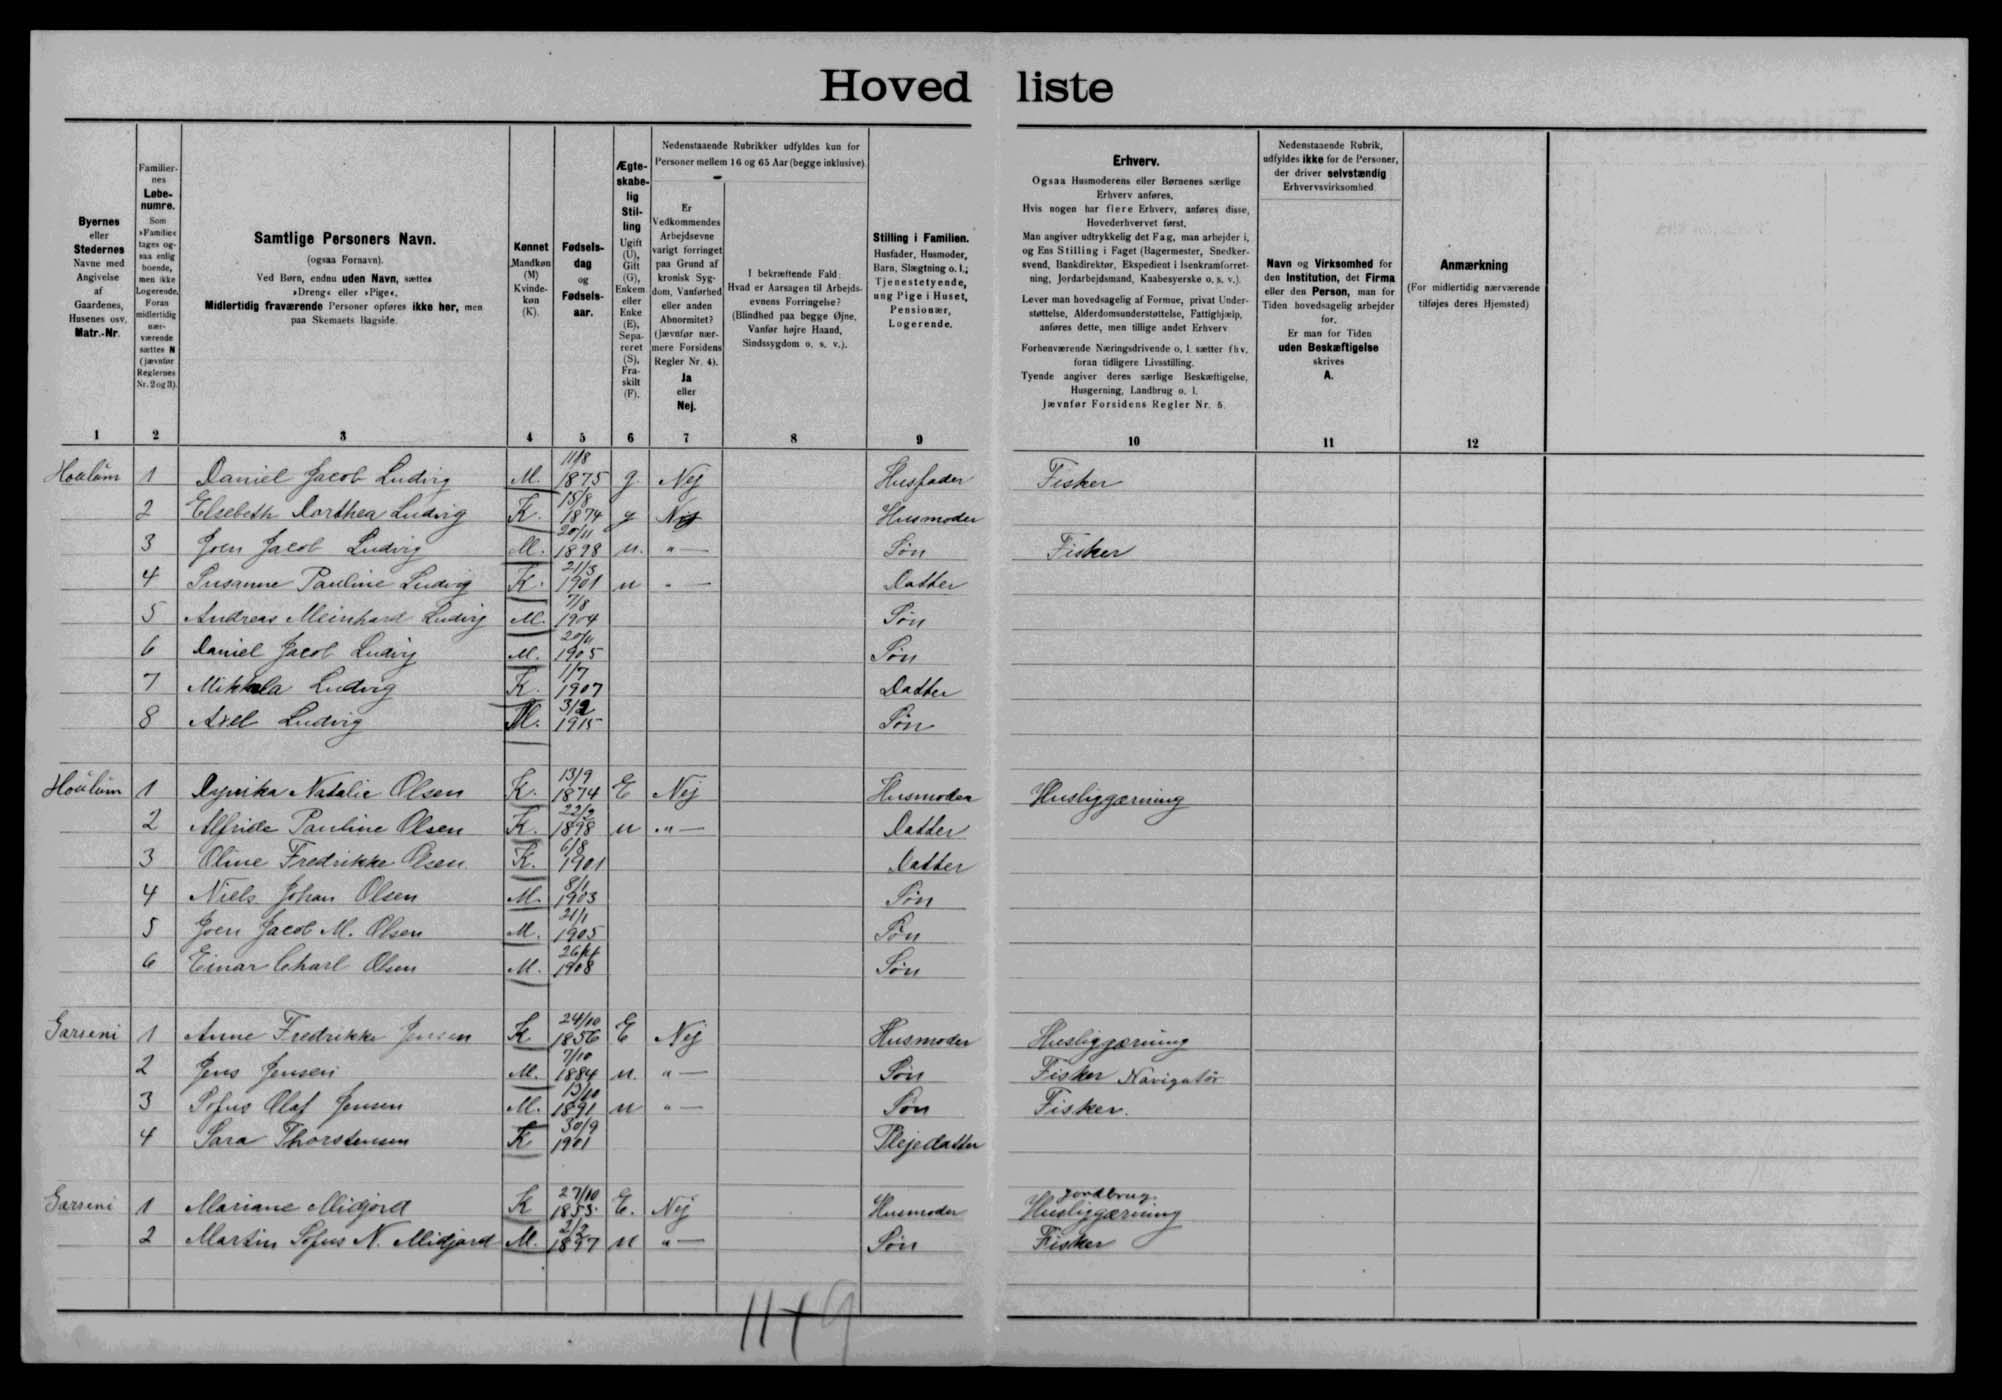 Hovedliste
Byernes eller Stedernes Navne med Angivelse af Gaardenes, Husenes osv. Matr.-Nr.
Familiernes Løbenumre. Som »Familie« tages ogsaa enlig boende, men ikke Logerende. Foran midlertidig nærværende sættes N (jævnfør Reglernes Nr. 2 og 3).
Samtlige Personers Navn.
(ogsaa Fornavn).
Ved Børn, endnu uden Navn, sættes »Dreng« eller »Pige«.
Midlertidig fraværende Personer opføres ikke her, men paa Skemaets Bagside.
Kønnet Mandkøn (M) Kvindekøn (K).
Fødselsdag og Fødselsaar.
Ægteskabelig Stilling Ugift (U), Gift (G), Enkem. eller Enke (E), Separeret (S), Fraskilt (F).
Nedenstaaende Rubrikker udfyldes kun for Personer mellem 16 og 65 Aar (begge inklusive).
Er Vedkommendes Arbejdsevne varigt forringet paa Grund af kronisk Sygdom, Vanførhed eller anden Abnormitet? (Jævnfør nærmere Forsidens Regler Nr. 4). Ja eller Nej.
I bekræftende Fald: Hvad er Aarsagen til Arbejdsevnens Forringelse? (Blindhed paa begge Øjne, Vanfør højre Haand, Sindssygdom o. s. v.).
Stilling i Familien. Husfader, Husmoder, Barn, Slægtning o. l.; Tjenestetyende, ung Pige i Huset, Pensionær, Logerende.
Erhverv.
Ogsaa Husmoderens eller Børnenes særlige Erhverv anføres.
Hvis nogen har flere Erhverv, anføres disse, Hovederhvervet først.
Man angiver udtrykkelig det Fag, man arbejder i, og Ens Stilling i Faget (Bagermester, Snedkersvend, Bankdirektør, Ekspedient i Isenkramforretning, Jordarbejdsmand, Kaabesyerske o. s. v.).
Lever man hovedsagelig af Formue, privat Understøttelse, Alderdomsunderstøttelse, Fattighjælp, anføres dette, men tillige andet Erhverv
Forhenværende Næringsdrivende o. l. sætter fhv. foran tidligere Livsstilling.
Tyende angiver deres særlige Beskæftigelse, Husgerning, Landbrug o. l.
Jævnfør Forsidens Regler Nr. 5.
Nedenstaaende Rubrik, udfyldes ikke for de Personer, der driver selvstændig Erhvervsvirksomhed
Navn og Virksomhed for den Institution, det Firma eller den Person, man for Tiden hovedsagelig arbejder for.
Er man for Tiden uden Beskæftigelse skrives A.
Anmærkning
(For midlertidig nærværende tilføjes deres Hjemsted)
1 2 3 4 5 6 7 8 9 10 11 12
1 Daniel Jacob Ludvig M. 11/8 1875 g. Nej Husfader Fisker
2 Elsebeth Dorthea Ludvig K. 15/8 1874 g Nej Husmoder
3 Joen Jacob Ludvig M. 20/11 1898 u. " — Søn Fisker
4 Susanne Pauline Ludvig K. 21/3 1901 u " — Datter
5 Andreas Meinhard Ludvig M. 7/8 1904 Søn
6 Daniel Jacob Ludvig M. 20/11 1905 Søn
7 Mikkela Ludvig K. 1/7 1907 Datter
8 Axel Ludvig M. 3/2 1915 Søn
1 Natalie Olsen K. 13/9 1874 E Nej Husmoder Husliggærning
2 Alfride Pauline Olsen K. 22/2 1898 u " — Datter
3 Oline Fredrikke Olsen K. 6/8 1901 Datter
4 Niels Johan Olsen M. 8/1 1903 Søn
5 Joen Jacob M. Olsen M. 21/1 1905 Søn
6 Einar Charl Olsen M. 1908 Søn
Garseni 1 Anne Fredrikke Jensen K 24/10 1856 E Nej Husmoder Husliggærning
2 Jens Jensen M. 7/10 1884 u. " — Søn Fisker Navigatør
3 Sofus Olaf Jensen M. 13/10 1891 u " — Søn Fisker.
4 Sara Thorstensen K 30/9 1901 Plejedatter
Garseni 1 Mariane Midjord K 27/10 1853. E. Nej Husmoder Jordbrug. Husliggærning
2 Martin Sofus N. Midjord M. 2/2 1897 u " — Søn Fisker
11+9